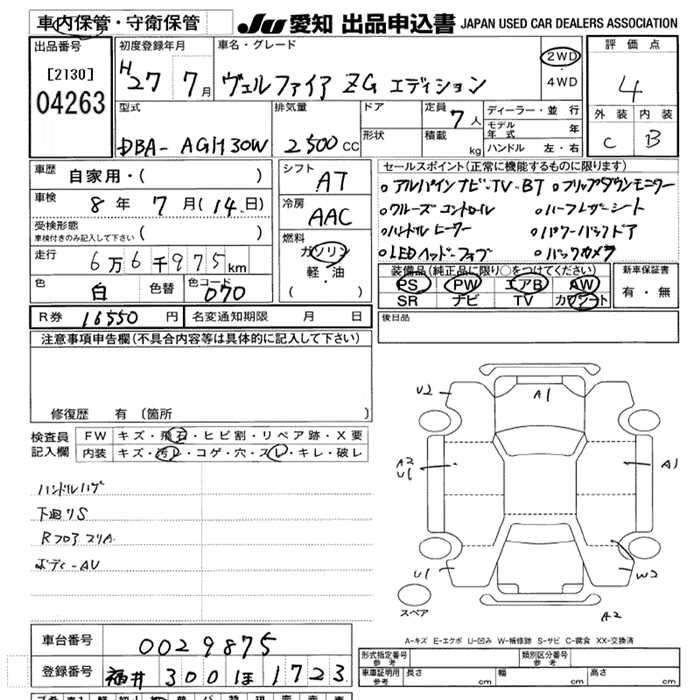 車内保管・守衛保管
JU 愛知 出品申込書 JAPAN USED CAR DEALERS ASSOCIATION
出品番号 [2130] 04263
初度登録年月 H27 7月
車名・グレード ヴェルファイア ZG エディション
2WD・4WD
評価点 4
外装 C 内装 B
型式 DBA-AGH30W
排気量 2500cc
ドア
形状
定員 7人
積載 kg
ディーラー・並行
モデル年式 年
ハンドル 左・右
車歴 自家用・( )
車検 8年7月(14日)
受検形態 車検付きのみ記入して下さい ( )
走行 6万6千975km
色 白 色替 色コード 070
シフト AT
冷房 AAC
燃料 ガソリン 軽・油 ( )
セールスポイント(正常に機能するものに限ります)
○アルパインナビ・TV・BT ○フリップダウンモニター
○クルーズコントロール ○ハーフレザーシート
○ハンドルヒーター ○パワーバックドア
○LEDヘッド・フォグ ○バックカメラ
装備品(純正品に限り○をつけてください)
PS PW エアB AW
SR ナビ TV カワシート
新車保証書 有・無
R券 16550円 名変通知期限 月 日
後日品
注意事項申告欄(不具合内容等は具体的に記入して下さい)
修復歴 有(箇所 )
検査員記入欄
FW キズ・飛石・ヒビ割・リペア跡・X要
内装 キズ・汚レ・コゲ・穴・スレ・キレ・破レ
ハンドルハゲ
下廻りS
Rフロアスリキ
ボディーAU
U2 A1
A2 U1 A1
U1 W2
スペア A2
A-キズ E-エクボ U-凹み W-補修跡 S-サビ C-腐食 XX-交換済
車台番号 0029875
登録番号 福井 300 ほ 1723
形式指定番号 参考 類別区分番号 参考
車庫証明用 参考 長さ cm 幅 cm 高さ cm